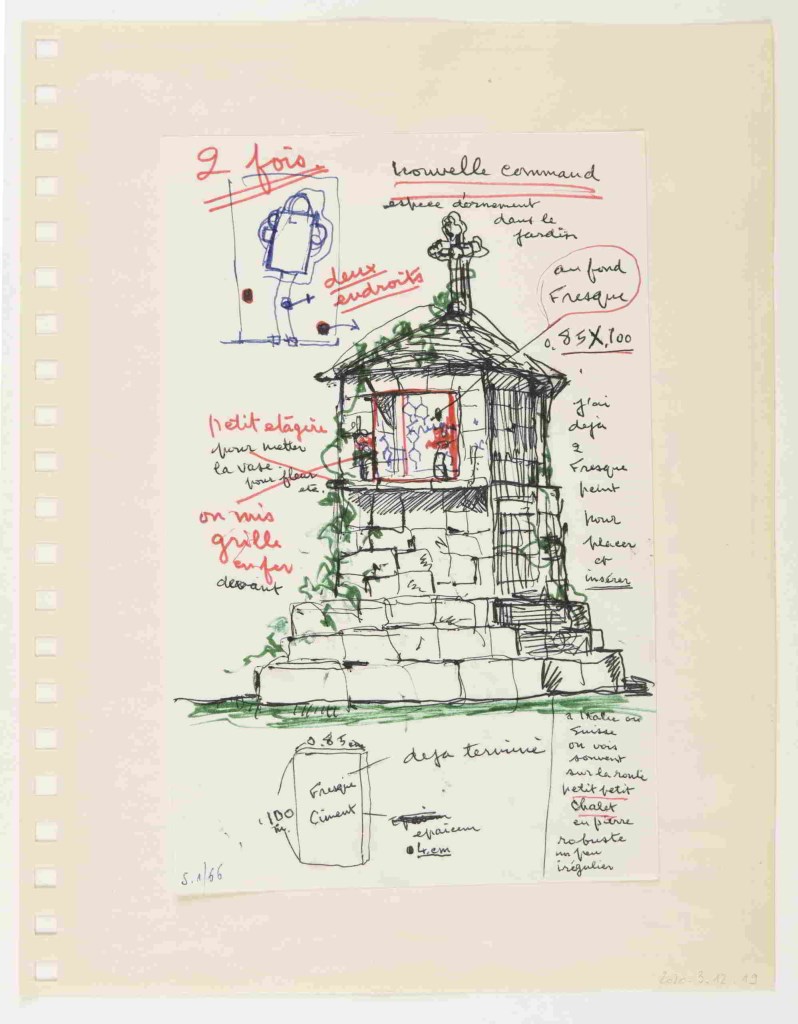 2 fois.
nouvelle command
espece d'ornement
dans le
jardin
deux
endroits
au fond
Fresque
0.85X1,00
petit etagère
pour metter
la vase
pour fleur
etc.
on mis
grille
en fer
devant
j'ai
dejà
2
Fresque
peint
pour
placer
et
insérer
0.85
deja terminé
Fresque
Ciment
100
epaiceur
4.cm
à Italie ou
Suisse
on vois
souvent
sur la route
petit petit
chalet
en pierre
robuste
un peu
irégulier
S. 1/66